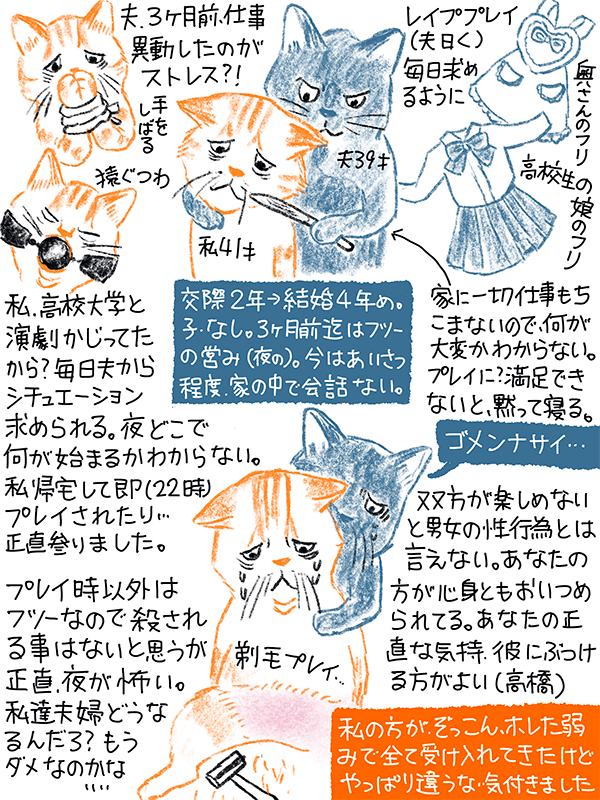 夫、3ヶ月前、仕事
異動したのが
ストレス?!
手を
しばる
猿ぐつわ
夫39才
私41才
レイププレイ
(夫曰く)
毎日求め
るように
奥さんのフリ
高校生の娘のフリ
交際2年→結婚4年め。
子.なし。3ヶ月前迄はフツー
の営み(夜の)。今はあいさつ
程度.家の中で会話ない。
家に一切仕事もち
こまないので、何が
大変かわからない。
プレイに?満足でき
ないと、黙って寝る。
私、高校大学と
演劇かじってた
から?毎日夫から
シチュエーション
求められる。夜どこで
何が始まるかわからない。
私帰宅して即(22時)
プレイされたり…
正直参りました。
ゴメンナサイ…
双方が楽しめない
と男女の性行為とは
言えない。あなたの
方が心身ともおいつめ
られてる。あなたの正
直な気持.彼にぶつけ
る方がよい(高橋)
プレイ時以外は
フツーなので殺され
る事はないと思うが
正直.夜が怖い。
私達夫婦どうな
るんだろ?もう
ダメなのかな
剃毛プレイ…
私の方が.ぞっこん、ホレた弱
みで全て受け入れてきたけど
やっぱり違うな…気付きました